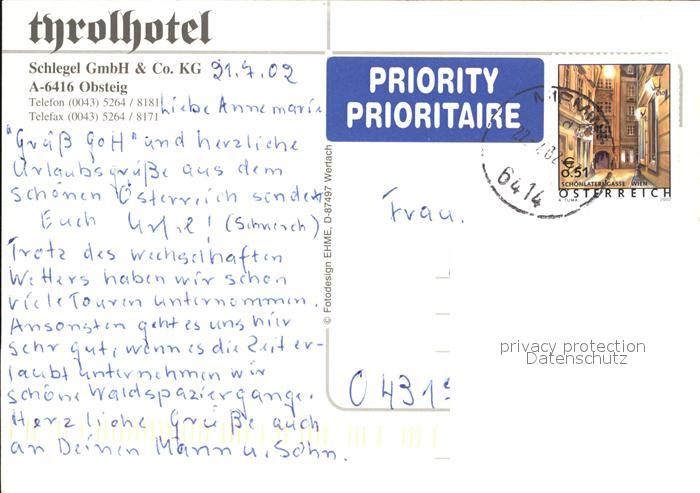 tyrolhotel
Schlegel GmbH & Co. KG 21.7.02
A-6416 Obsteig
Telefon (0043) 5264 / 8181 Liebe Annemarie
Telefax (0043) 5264 / 8171
"Grüß Gott" und herzliche
Urlaubsgrüße aus dem
schönen Österreich sendet
Euch Ursel! (Schmerch)
Trotz des wechselhaften
Wetters haben wir schon
viele Touren unternommen.
Ansonsten geht es uns hier
sehr gut, wenn es die Zeit er-
laubt unternehmen wir
schöne Waldspaziergänge.
Herzliche Grüße auch
an Deinen Mann u. Sohn.
© Fotodesign EHME, D-87497 Wertach
PRIORITY
PRIORITAIRE
6414
€
0.51
SCHÖNLATERNGASSE WIEN
ÖSTERREICH
A. TUMA 2002
Frau.
04319
privacy protection
Datenschutz